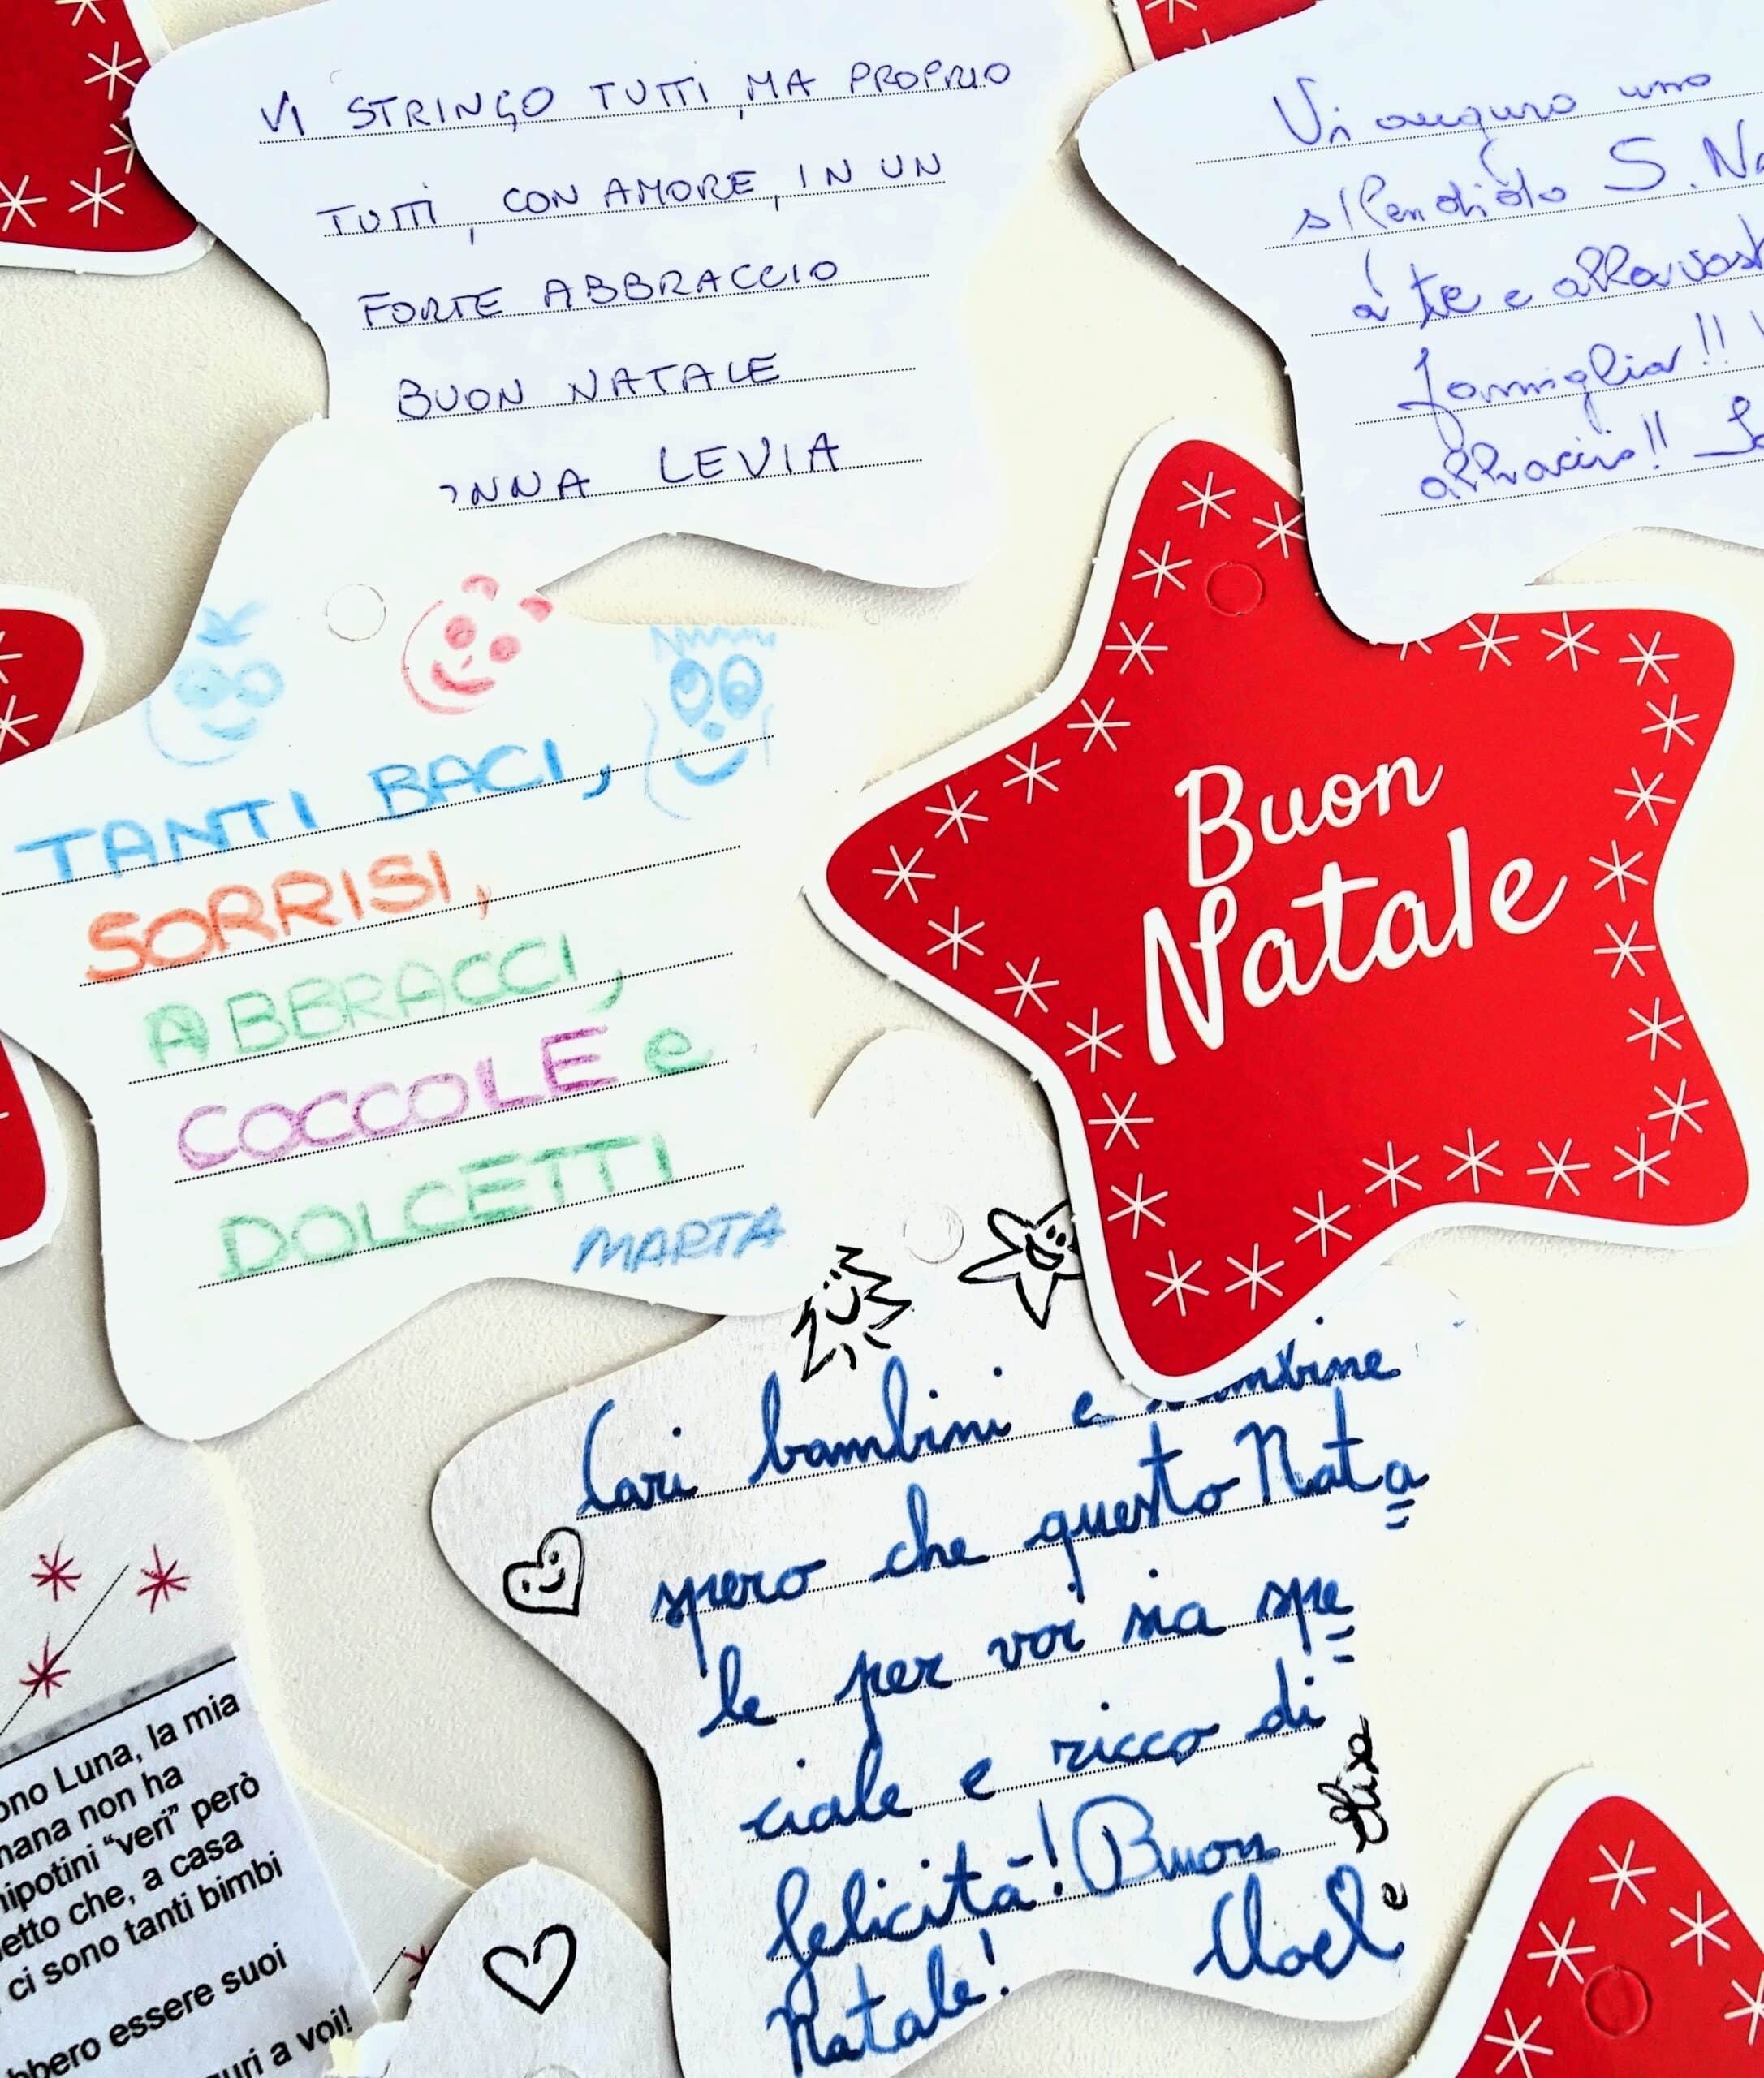 VI STRINGO TUTTI, MA PROPRIO
TUTTI, CON AMORE, IN UN
FORTE ABBRACCIO
BUON NATALE
LEVIA
Vi auguro uno
splendido S. Na
a te e alla vost
famiglia!!
abbraccio!!
TANTI BACI,
SORRISI,
ABBRACCI,
COCCOLE e
DOLCETTI
MARTA
Buon
Natale
Cari bambini e bambine
spero che questo Nata
le per voi sia spe
ciale e ricco di
felicità! Buon
Natale!
Elisa
e
Noel
ono Luna, la mia
nana non ha
nipotini "veri" però
etto che, a casa
ci sono tanti bimbi
bbero essere suoi
guri a voi!